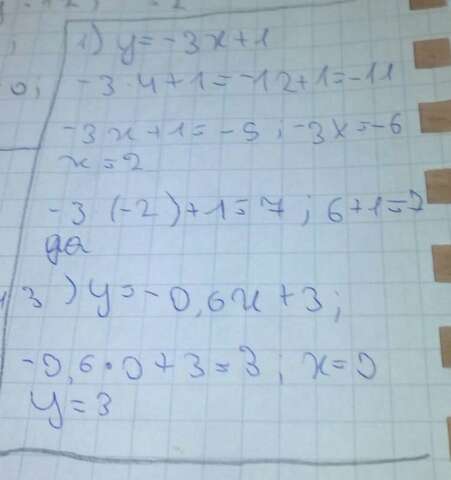 1) y=-3x+1
0; -3·4+1=-12+1=-11
-3x+1=-5; -3x=-6
x=2
-3(-2)+1=7; 6+1=7
да
3) y=-0,6x+3;
-0,6·0+3=3; x=0
y=3